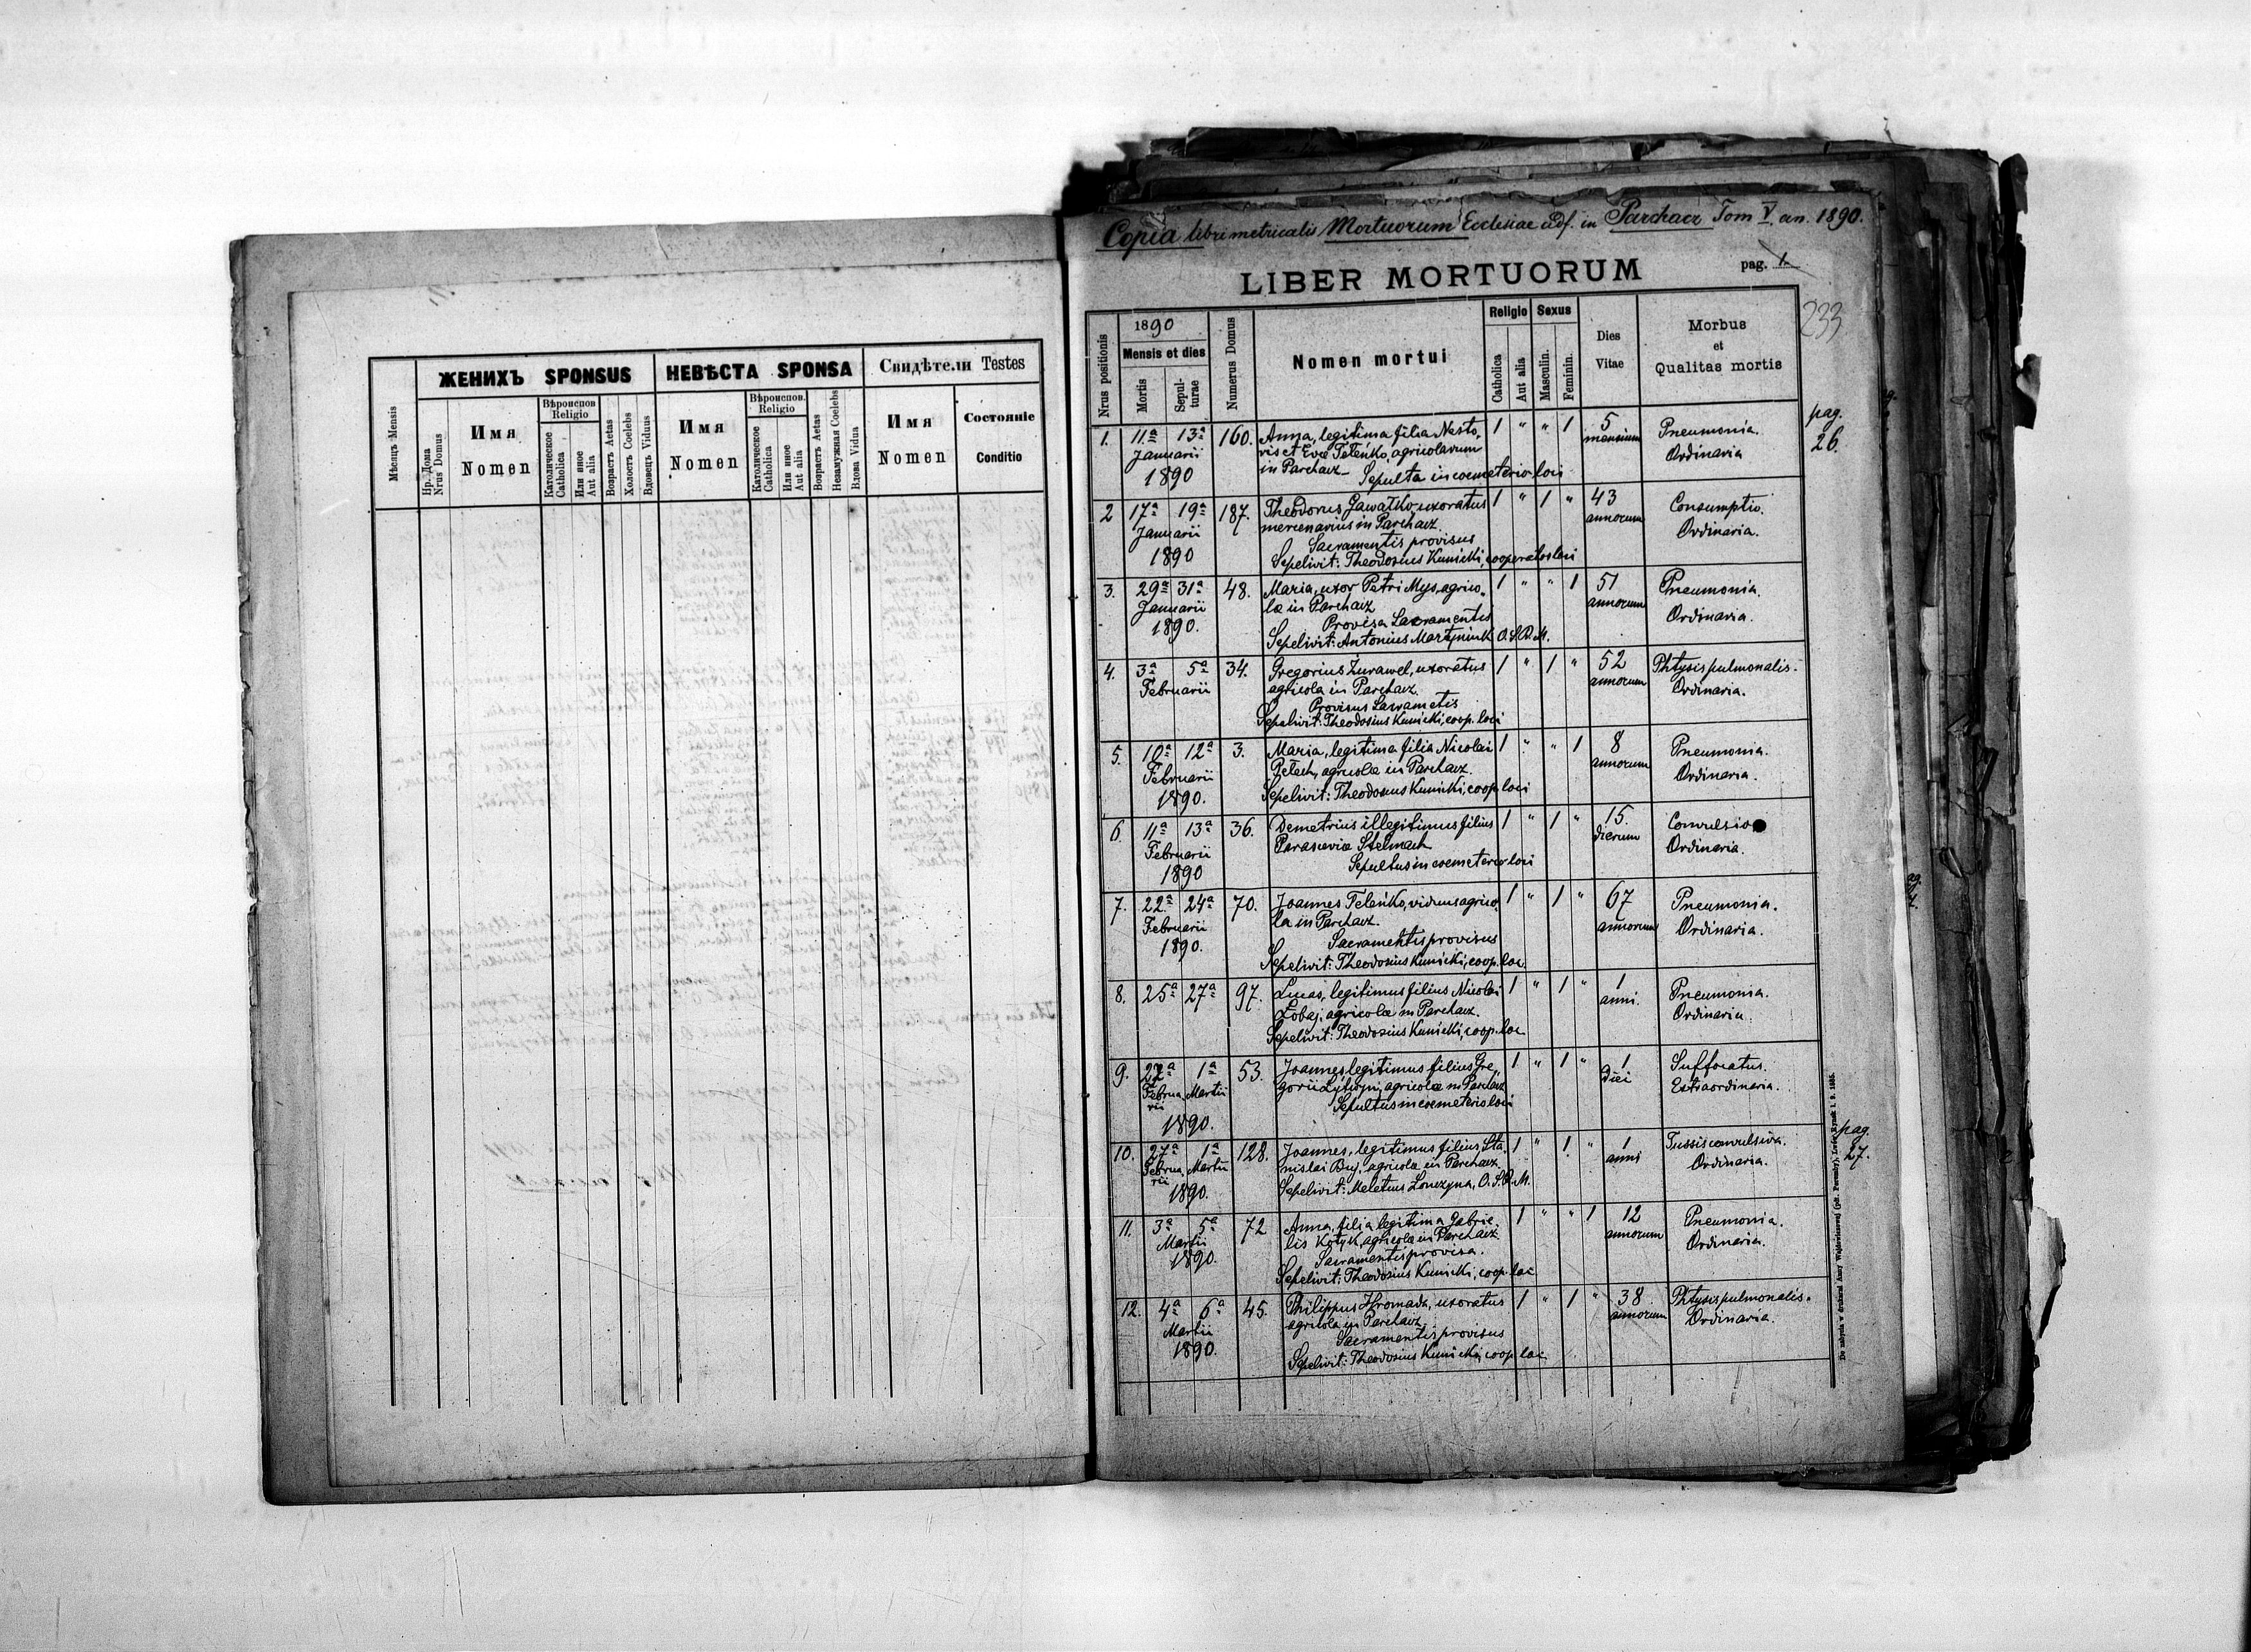 ЖЕНИХЪ SPONSUS
НЕВѢСТА SPONSA
Свидѣтели Testes
Мѣсяцъ Mensis
Нр. Дома
Nrus Domus
Имя
Nomen
Вѣроиспов.
Religio
Католическое
Catholica
Или иное
Aut alia
Возрастъ Aetas
Холостъ Coelebs
Вдовецъ Viduus
Имя
Nomen
Вѣроиспов.
Religio
Католическое
Catholica
Или иное
Aut alia
Возрастъ Aetas
Незамужная Coelebs
Вдова Vidua
Имя
Nomen
Состояніе
Conditio
Copia libri metricalis Mortuorum Ecclesiae adf. in Parchacz Tom V. an. 1890.
LIBER MORTUORUM
pag. 1
233
Nrus positionis
1890
Mensis et dies
Mortis
Sepul-
turae
Numerus Domus
Nomen mortui
Religio
Catholica
Aut alia
Sexus
Masculin.
Feminin.
Dies
Vitae
Morbus
et
Qualitas mortis
pag.
26.
1. 11a 13a 160. Anna, legitima filia Nesto, 1 " " 1 5 Pneumonia.
Januarii vis et Evae Teleńko, agricolarum mensium Ordinaria
1890 in Parchacz Sepulta in coemeterio loci
2 17a 19a 187. Theodorus Gawałko, uxoratus 1 " 1 " 43 Consumptio.
Januarii mercenarius in Parchacz. annorum Ordinaria.
Sacramentis provisus
1890 Sepelivit: Theodosius Kunicki, cooperator loci
3. 29a 31a 48. Maria, uxor Petri Mys, agrico, 1 " " 1 51 Pneumonia.
Januarii lae in Parchacz annorum Ordinaria.
1890. Provisa Sacramentis
Sepelivit: Antonius Martyniuk O.S.B.M.
4. 3a 5a 34. Gregorius Żurawel, uxoratus 1 " 1 " 52 Phtysis pulmonalis.
Februarii agricola in Parchacz. annorum Ordinaria.
Provisus Sacrametis
Sepelivit: Theodosius Kunicki, coop. loci
5. 10a 12a 3. Maria, legitima filia Nicolai 1 " " 1 8 Pneumonia.
Februarii agricolae in Parchacz. annorum Ordinaria.
1890. Sepelivit: Theodosius Kunicki, coop. loci
6 11a 13a 36. Demetrius illegitimus filius 1 " 1 " 15. Convulsio
Februarii Parasceviae Stelmach dierum Ordinaria.
1890 Sepultus in coemeterio loci
7. 22a 24a 70. Joannes Teleńko, viduus agrico, 1 " 1 " 67 Pneumonia.
Februarii la in Parchacz. annorum Ordinaria.
1890. Sacramentis provisus
Sepelivit: Theodosius Kunicki, coop. loc.
8. 25a 27a 97. Lucas, legitimus filius Nicolai 1 " 1 " 1 Pneumonia.
Łobaj, agricolae in Parchacz. anni. Ordinaria.
Sepelivit: Theodosius Kunicki, coop. loc
9. 27a 1a 53. Joannes, legitimus filius Gre, 1 " 1 " 1 Suffocatus.
Februa, Martii gorii agricolae in Parchacz diei Extraordinaria.
rii Sepultus in coemeterio loci
1890.
pag.
27.
10. 27a 1a 128. Joannes, legitimus filius Sta, 1 " 1 " 1 Tussis convulsiva.
Februa, Martii nislai Buj, agricolae in Parchacz. anni Ordinaria.
rii
1890. Sepelivit: Meletius Lonczyna, O.S.B.M.
11. 3a 5a 72 Anna, filia legitima Gabrie, 1 " " 1 12 Pneumonia.
Martii lis Kotyk, agricolae in Parchacz annorum Ordinaria.
1890. Sacramentis provisa.
Sepelivit: Theodosius Kunicki, coop. loc
12. 4a 6a 45. Philippus Hromada, uxoratus 1 " 1 " 38 Phtysis pulmonalis.
Martii agricola in Parchacz. annorum Ordinaria.
1890. Sacramentis provisus
Sepelivit: Theodosius Kunicki, coop loc